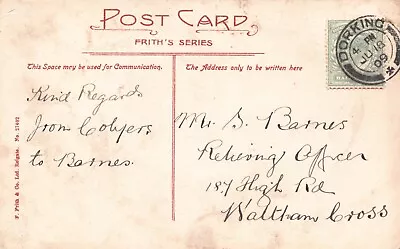 POST CARD
FRITH'S SERIES
This Space may be used for Communication.
The Address only to be written here
DORKING
4 PM
JU 18
09
Kind Regards
from Colyers
to Barnes.
Mr. G. Barnes
Relieving Officer
187 High Rd
Waltham Cross
F. Frith & Co. Ltd. Reigate. No. 27492